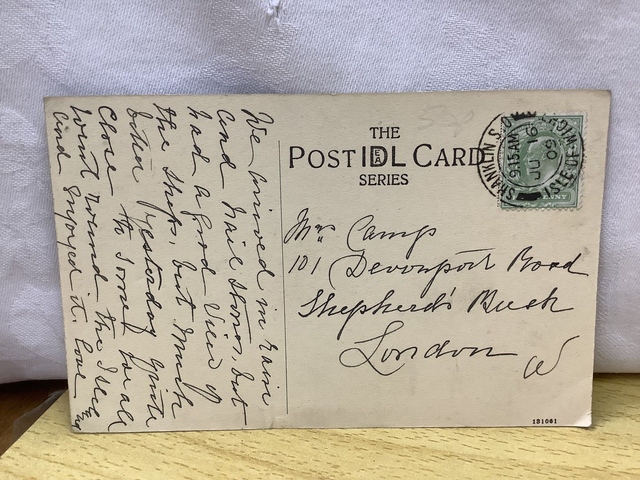 We arrived in Rain
and Hail Stones, but
had a good View of
the Ships, but much
better yesterday quite
Close to Some for all
Went round the Isle
and Enjoyed it. Love
THE
POST IDEAL CARD
SERIES
SHANKLIN S.O.
9.15 AM
JU 6
09
ISLE OF WIGHT
Mrs Camp
101 Devonport Road
Shepherd's Bush
London W
181061